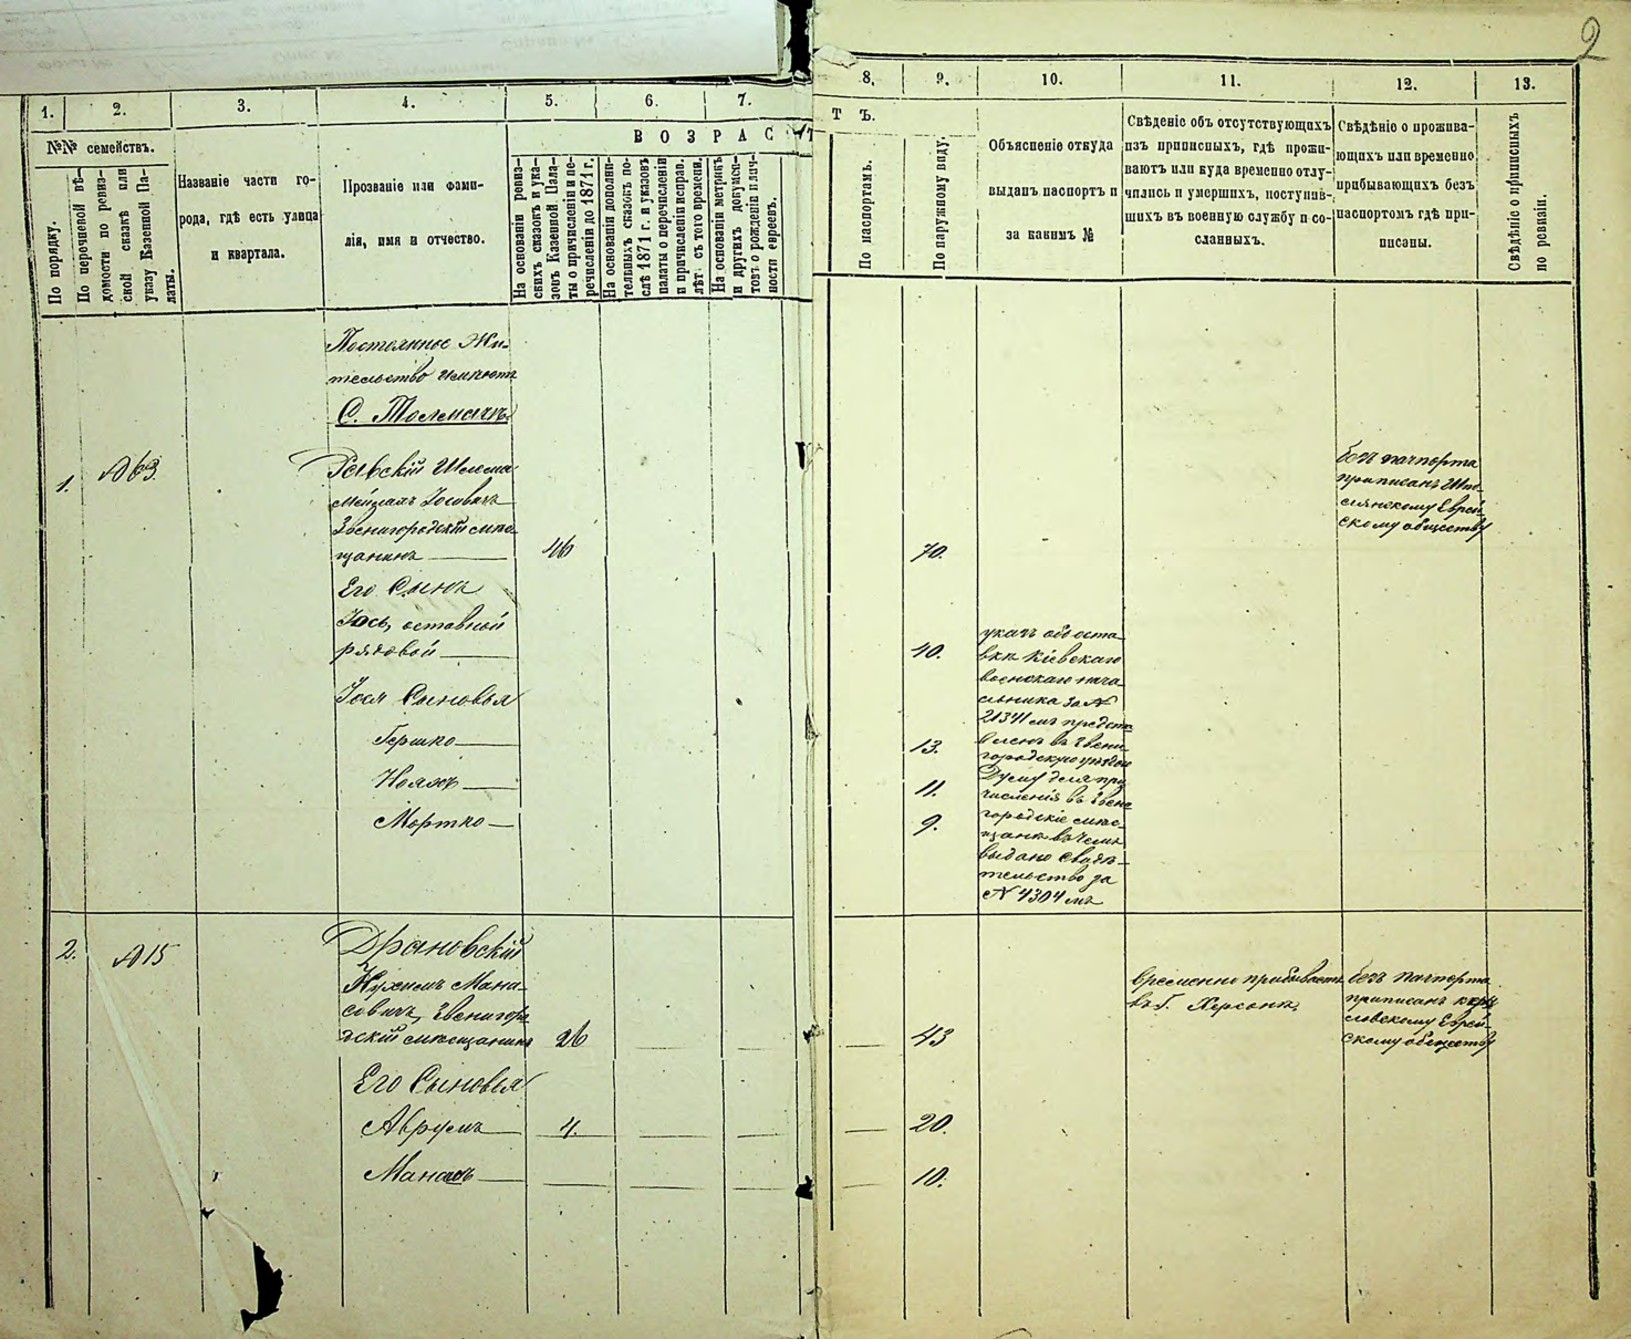 2
1.
2.
3.
4.
5.
6.
7.
8.
9.
10.
11.
12.
13.
№№ семействъ.
По порядку.
По перечневой вѣ-
домости по ревиз-
ской сказкѣ или
указу Казенной Па-
латы.
Названіе части го-
рода, гдѣ есть улица
и квартала.
Прозваніе или фами-
лія, имя и отчество.
ВОЗРАС
Т Ъ.
На основаніи ревиз-
скихъ сказокъ и ука-
зовъ Казенной Пала-
ты о причисленіи и пе-
речисленіи до 1871 г.
На основаніи дополни-
тельныхъ сказокъ по-
слѣ 1871 г. и указовъ
палаты о перечисленіи
и причисленіи исправ.
лѣт. съ того времени.
На основаніи метрикъ
и другихъ докумен-
товъ о рожденіи и лич-
ности евреевъ.
По паспортамъ.
По наружному виду.
Объясненіе откуда
выданъ паспортъ и
за какимъ №
Свѣденіе объ отсутствующихъ
изъ приписныхъ, гдѣ прожи-
ваютъ или куда временно отлу-
чились и умершихъ, поступив-
шихъ въ военную службу и со-
сланныхъ.
Свѣдѣніе о прожива-
ющихъ или временно
прибывающихъ безъ
паспортомъ гдѣ при-
писаны.
Свѣдѣніе о приписныхъ
по ровнаіи.
Постоянное Жи-
тельство имѣютъ
С. Толмачъ
1.
№ 63.
Шлема
Мейлахъ Іосевичъ
Звенигородскій мѣ-
щанинъ
46
70.
безъ пачпорта
приписанъ Шпо-
лянскому Еврей-
скому обществу
Его Сынъ
Іось, оставной
рядовой
40.
указъ объ оста-
вкѣ Кіевскаго
военскаго нача-
льника за №
21341 мъ предста-
вленъ въ Звени-
городскую
Думу для при
численія въ Звени
городскіе мѣ-
щане въ чемъ
выдано свидѣ-
тельство за
№ 4304 мъ
Іося Сыновья
Гершко
13.
11.
Мортко
9.
2.
№ 15
Драновскій
Нухимъ Мана-
совичъ, Звенигоро
дскій мѣщанинъ
26
43
временно прибываетъ
въ Г. Херсонѣ
безъ пачпорта
приписанъ
Еврей-
скому обществу
Его Сыновья
Аврумъ
4.
20.
Манасъ
10.